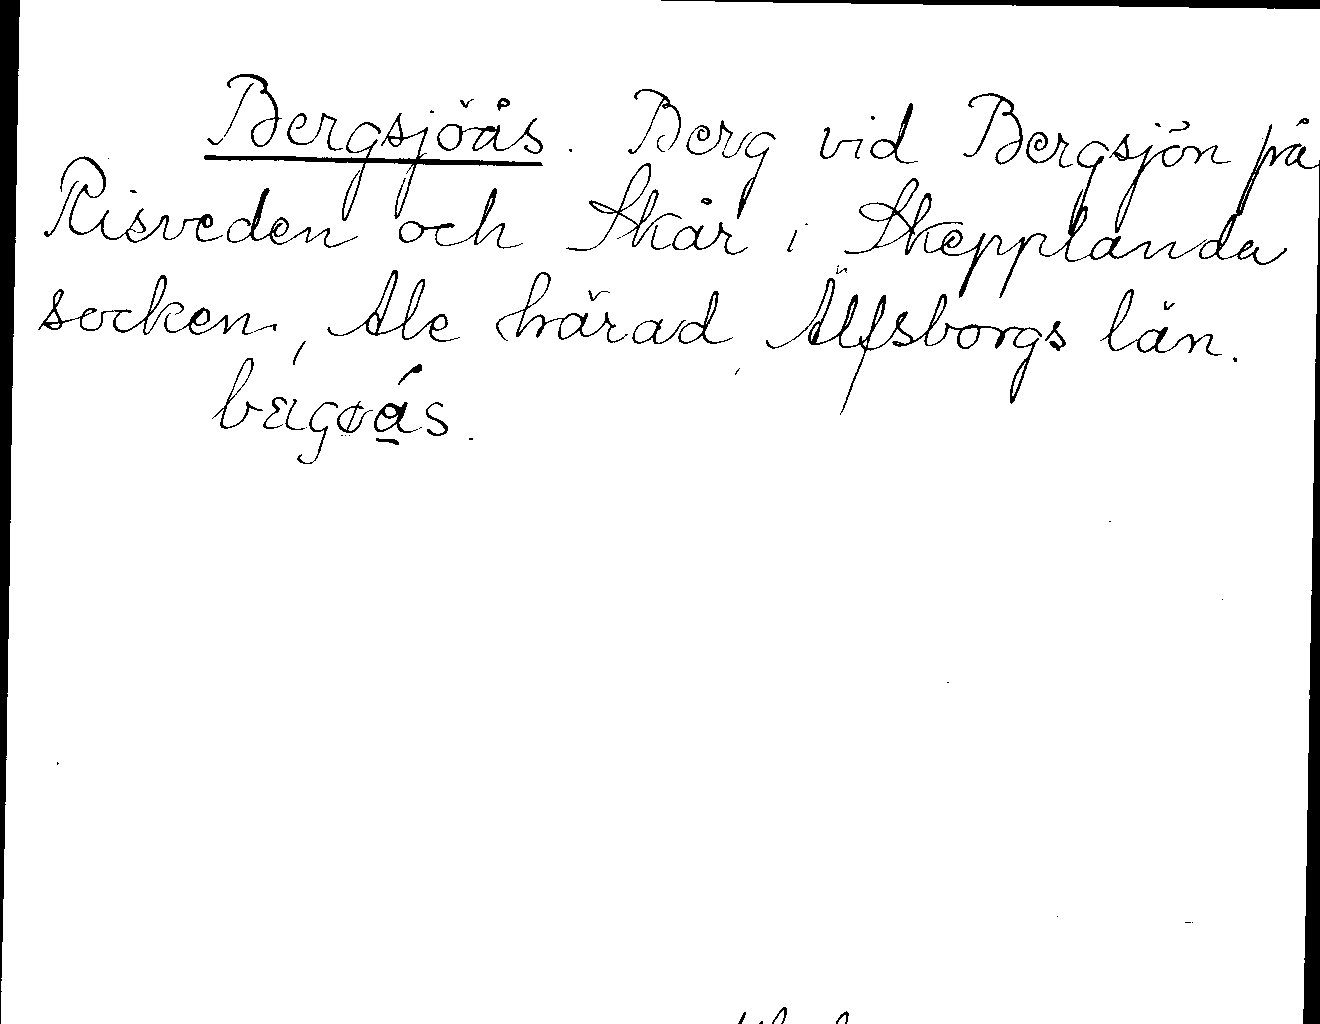 Bergsjöås. Berg vid Bergsjön på
Risveden och Skår i Skepplanda
socken, Ale härad, Älfsborgs län.